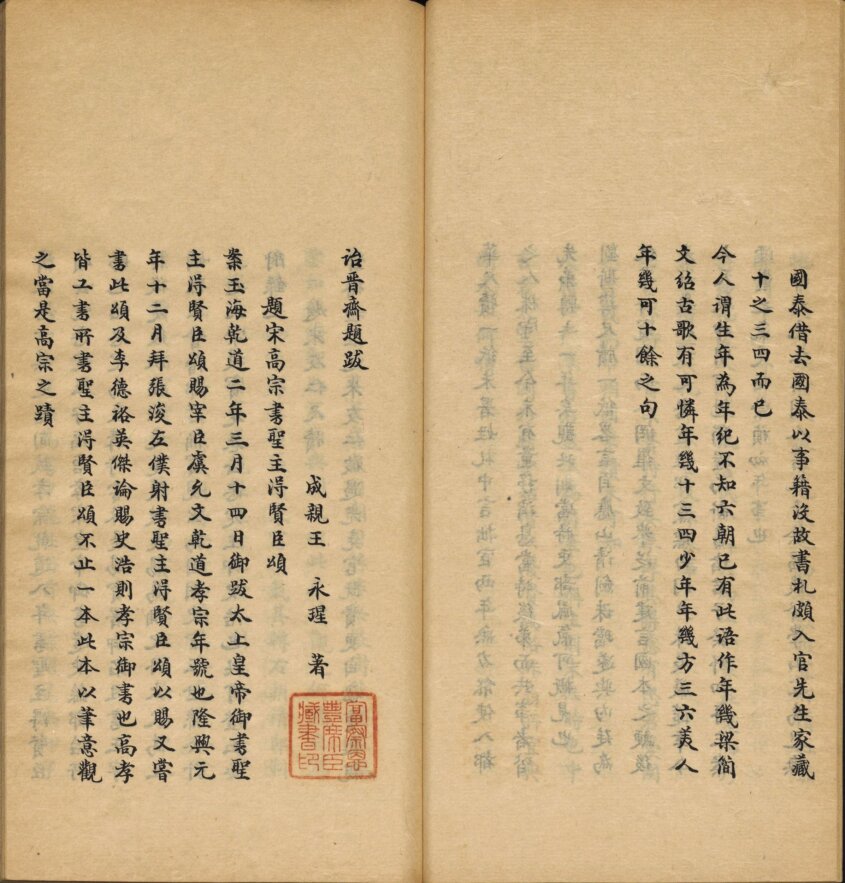 國泰借去國泰以事籍沒故書札頗入官先生家藏
十之三四而已
今人谓生年為年紀不知六朝已有此语作年幾梁簡
文绍古歌有可憐年幾十三四少年年幾方三六美人
年幾可十餘之句
诒晋齋題跋
成親王 永瑆 著
題宋高宗書聖主得賢臣頌
案玉海乾道二年三月十四日御跋太上皇帝御書聖
主得賢臣頌賜宰臣虞允文乾道孝宗年號也隆興元
年十二月拜張浚左僕射書聖主得賢臣頌以賜又嘗
書此頌及李德裕英傑論賜史浩則孝宗御書也高孝
皆工書所書聖主得賢臣頌不止一本此本以筆意觀
之當是高宗之蹟
豐席臣
藏書印